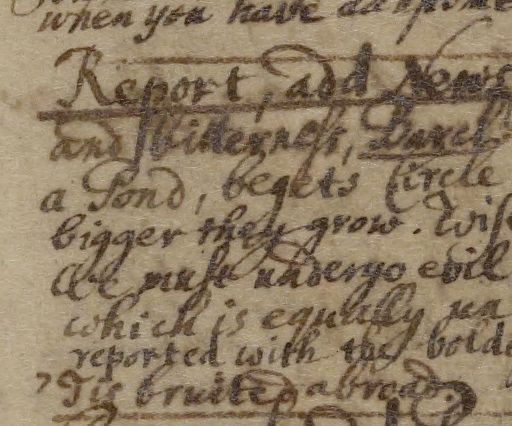 when you have
Report, add News
and bitterness, Barcl:
a Pond, begets Circle
bigger they grow. Wis
We must undergo evil
which is equally un
reported with the bold
'Tis bruited abroad.